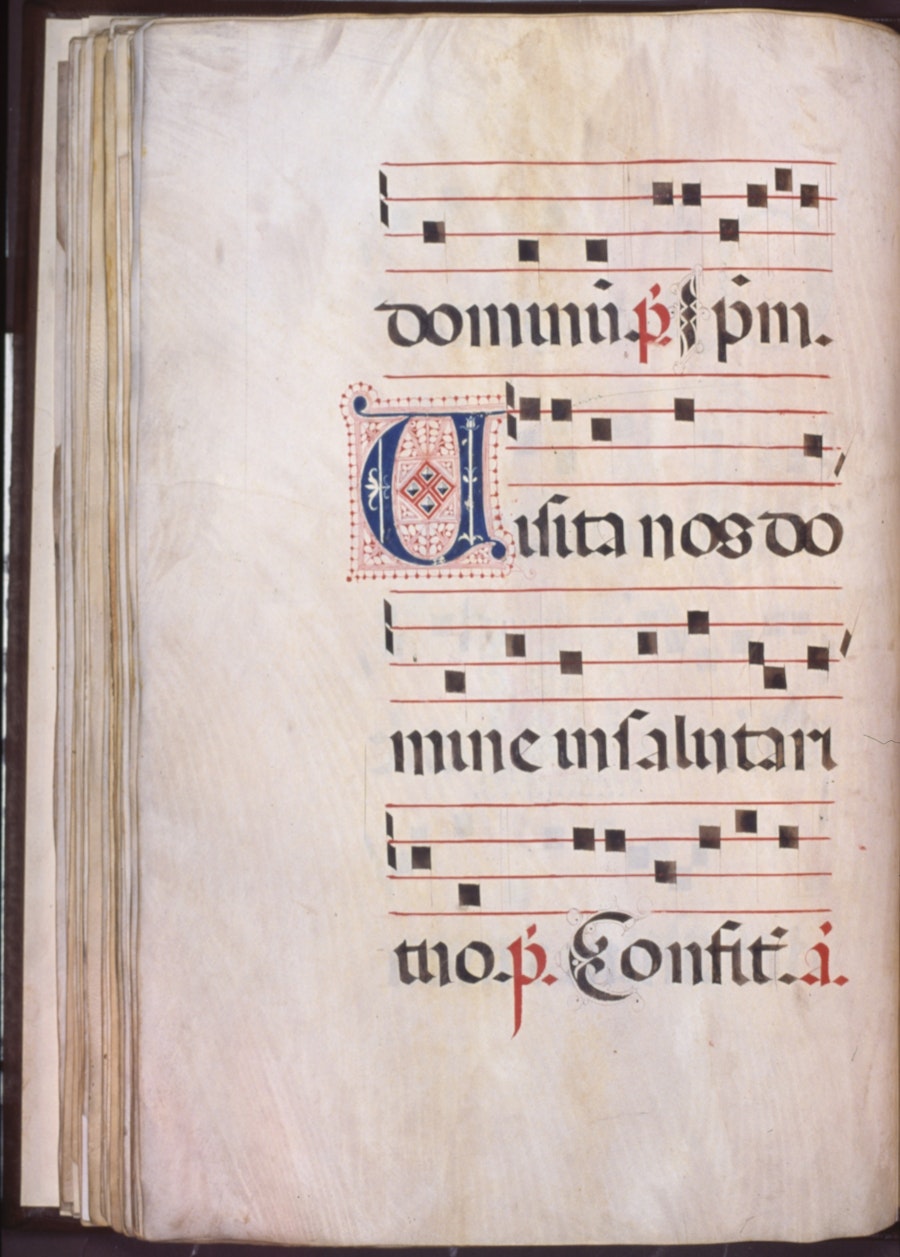 dominū. p̄. I p̄m.
Uisita nos do
mine in salutari
tuo. p̄. Confit̄. a.